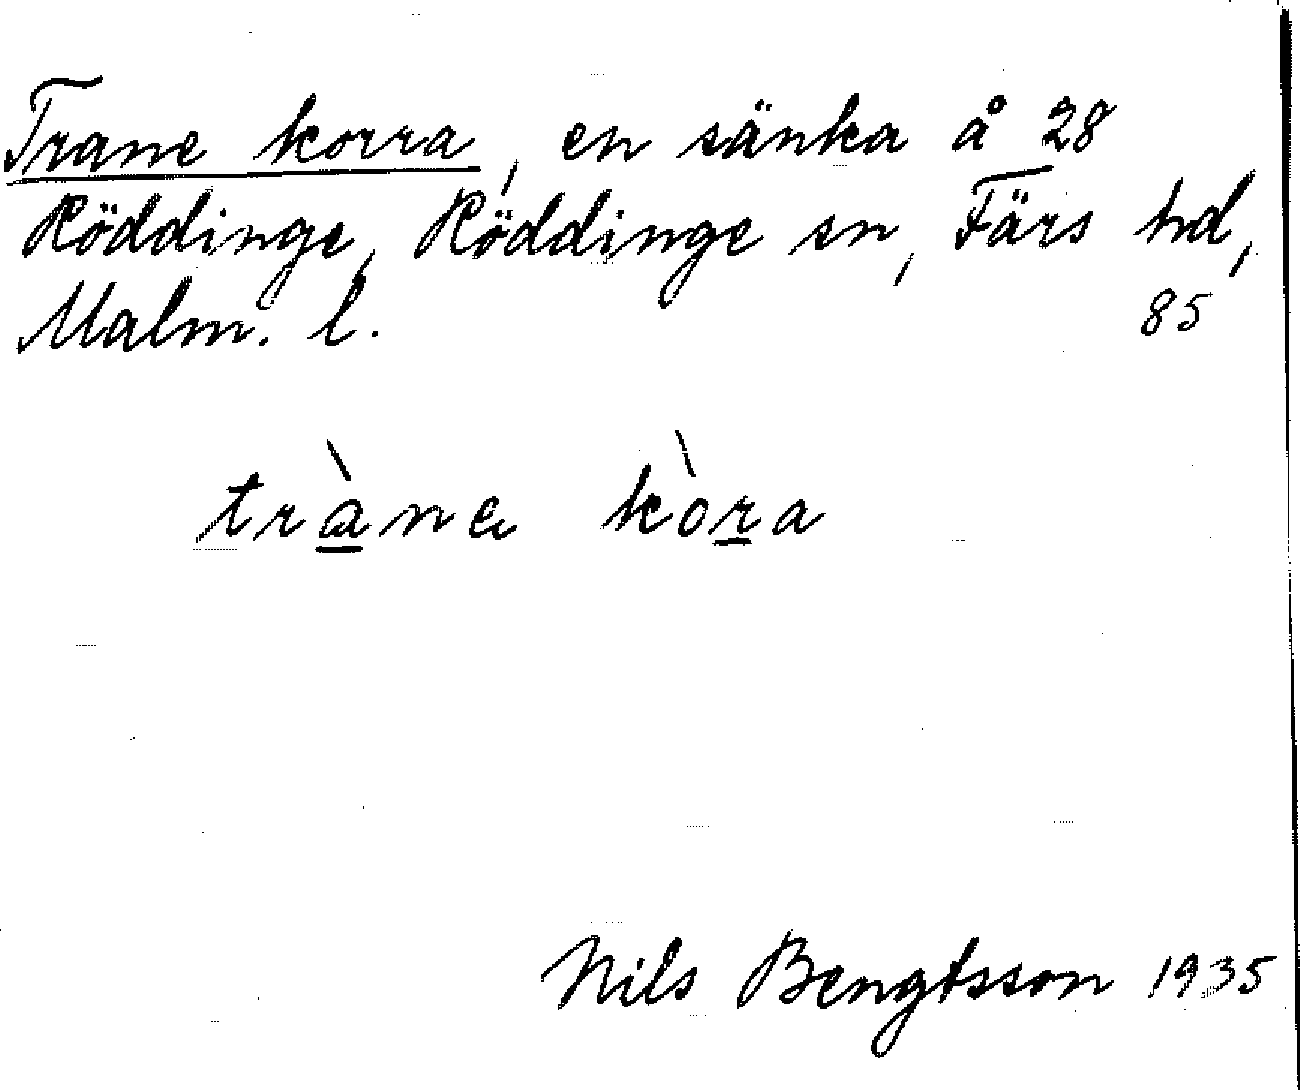 Trane korra, en sänka å 28
Röddinge, Röddinge sn, Färs hd,
Malm. l. 85
tràne kòra
Nils Bengtsson 1935